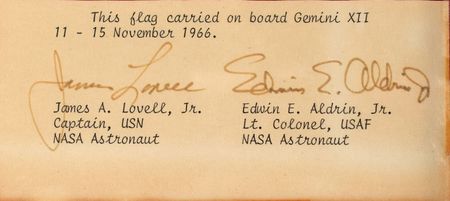 This flag carried on board Gemini XII
11 - 15 November 1966.
James Lovell Edwin E. Aldrin Jr
James A. Lovell, Jr. Edwin E. Aldrin, Jr.
Captain, USN Lt. Colonel, USAF
NASA Astronaut NASA Astronaut